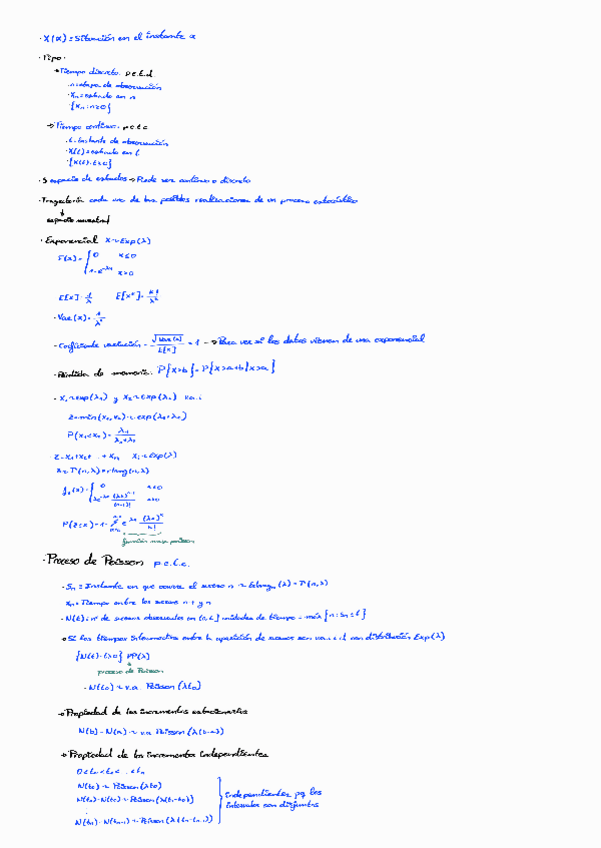 · X(x) = Situación en el instante x
· Tipo ·
→ Tiempo discreto. p.e.t.d.
· n = etapa de observación
· Xn = estado en n
· {Xn : n≥0}
→ Tiempo continuo. p.e.t.c
· t. instante de observación
· X(t) = estado en t
· {X(t) : t≥0}
· S espacio de estados → Puede ser continuo o discreto
· Trayectoria cada una de las posibles realizaciones de un proceso estocástico
↓
espacio muestral
· Exponencial X ~ Exp(λ)
F(x) = { 0 x≤0
1 - e^-λx x>0
E[x] = 1/λ E[x^k] = k!/λ^k
· Var(x) = 1/λ²
· Coeficiente variación = √Var(x) / E[x] = 1 → Para ver si los datos vienen de una exponencial
· Pérdida de memoria. P{x>b} = P{x>a+b | x>a}
· X1 ~ exp(λ1) y X2 ~ exp(λ2) v.a.i
Z = min(X1, X2) ~ exp(λ1+λ2)
P(X1<X2) = λ1 / λ1+λ2
Z = X1+X2+ .. + Xn, Xi ~ exp(λ)
(n, λ) = erlang(n, λ)
P(Z≤x) = 1 -
función masa poisson
· Proceso de Poisson p.e.t.c.
· Sn = Instante en que ocurre el suceso n ~ Erlang n (λ) = Γ(n, λ)
Xn = Tiempo entre los sucesos n-1 y n
· N(t) = nº de sucesos observados en (0,t] unidades de tiempo = máx {n : Sn ≤ t}
Si los tiempos entre la aparición de sucesos son v.a.i.i.d con distribución Exp(λ)
{N(t) : t≥0} PP(λ)
↓
proceso de Poisson
- N(t0) ~ v.a. Poisson (λt0)
→ Propiedad de los incrementos estacionarios
N(b) - N(a) ~ v.a. Poisson (λ(b-a))
→ Propiedad de los incrementos independientes
0<t0<t1< ..<tn
N(t0) ~ Poisson (λt0)
N(t1) - N(t0) ~ Poisson (λ(t1-t0))
N(tn) - N(tn-1) ~ Poisson (λ(tn-tn-1))
independientes pq los
intervalos son disjuntos